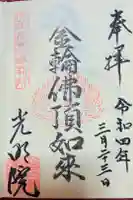 奉拝
令和四年
三月二十三日
金輪佛頂如来
光明院